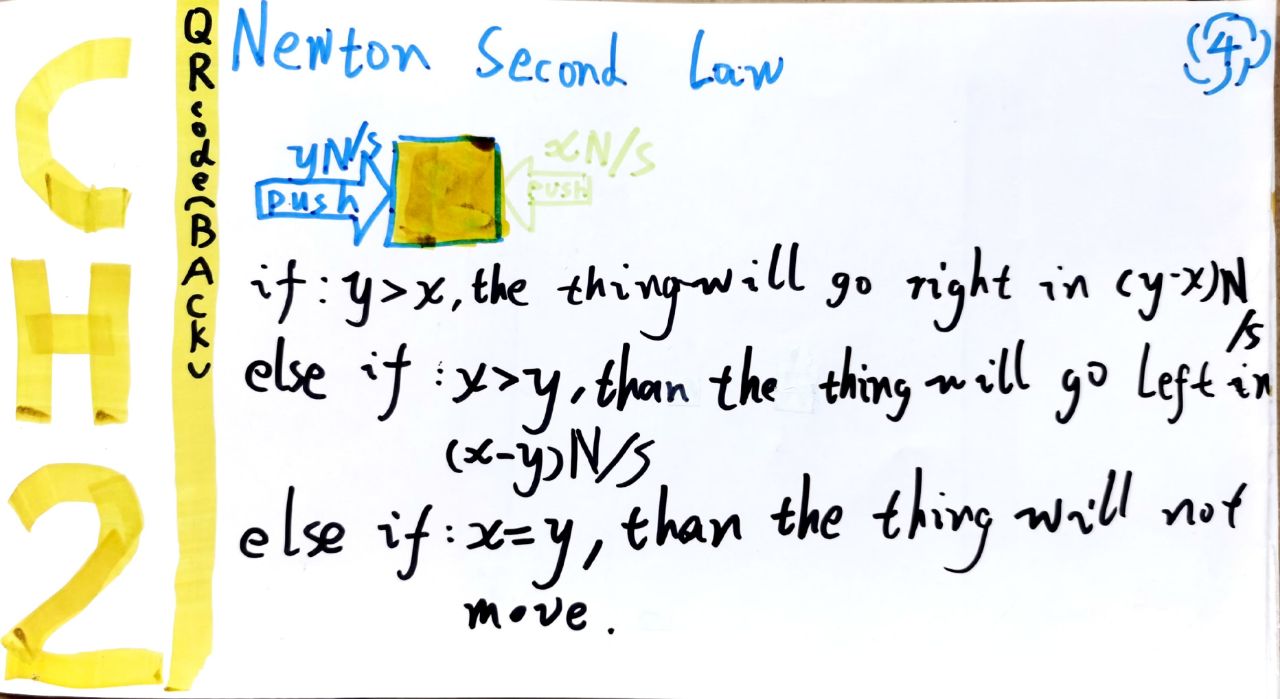 CH2
QRcode(BACK)
Newton Second Law
4
yN/s
push
xN/S
PUSH
if:y>x,the thing will go right in (y-x)N
/s
else if:x>y,than the thing will go Left in
(x-y)N/S
else if:x=y,than the thing will not
move.